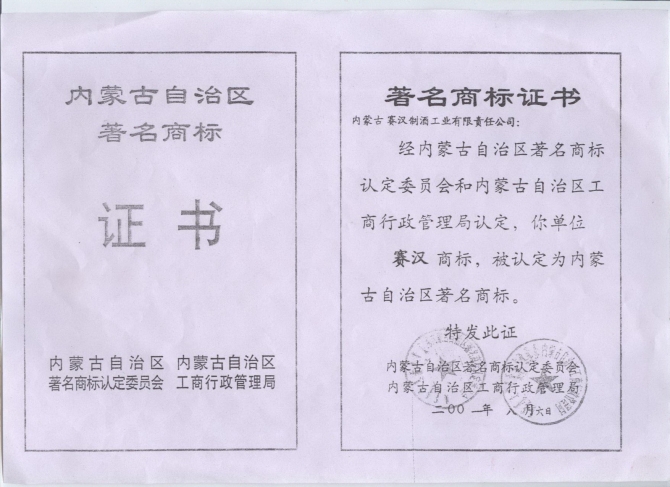 内蒙古自治区
著名商标
证书
内蒙古自治区 内蒙古自治区
著名商标认定委员会 工商行政管理局
著名商标证书
内蒙古赛汉制酒工业有限责任公司：
经内蒙古自治区著名商标
认定委员会和内蒙古自治区工
商行政管理局认定，你单位
赛汉 商标，被认定为内蒙
古自治区著名商标。
特发此证
内蒙古自治区著名商标认定委员会
内蒙古自治区工商行政管理局
二00 年 八 月六日